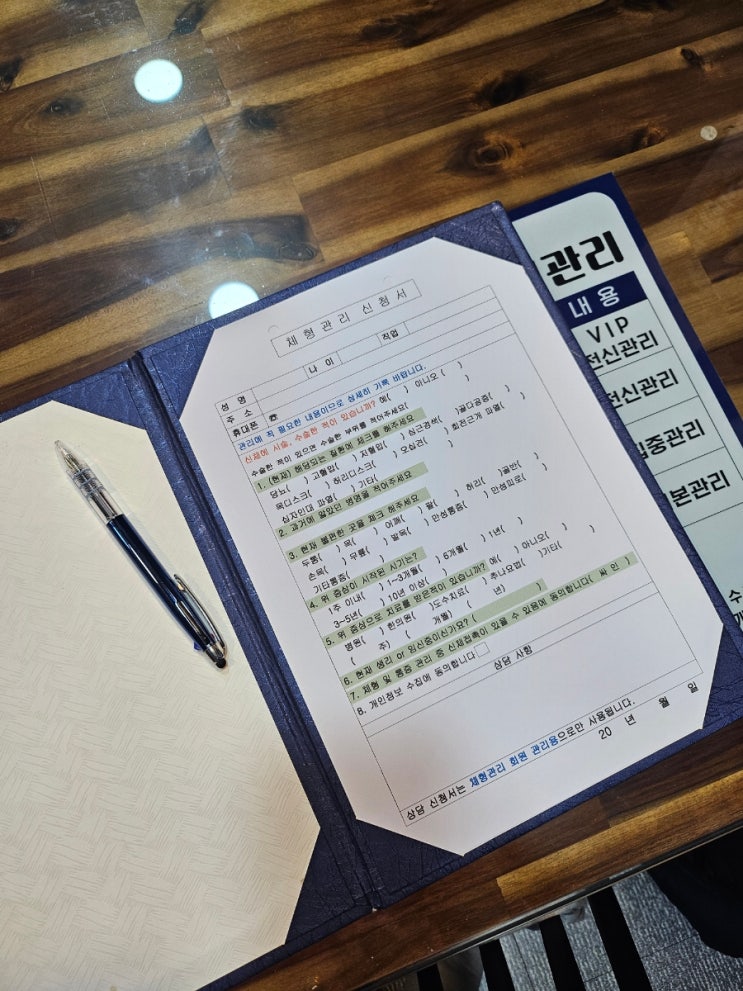 체형관리 신청서
성 명 나 이 직업
주 소
휴대폰 ☎
관리에 꼭 필요한 내용이므로 상세히 기록 바랍니다.
신체에 시술, 수술한 적이 있습니까? 예( ) 아니오( )
수술한 적이 있으면 수술한 부위를 적어주세요!
1. (현재) 해당되는 질환에 체크를 해주세요
당뇨( ) 고혈압( ) 저혈압( ) 심근경색( )골다공증( )
목디스크( )허리디스크( ) 오십견( ) 회전근개 파열( )
십자인대 파열( ) 기타( )
2. 과거에 앓았던 병명을 적어주세요
3. 현재 불편한 곳을 체크 해주세요
두통( ) 목( ) 어깨( ) 팔( ) 허리( )골반( )
손목( ) 무릎( ) 발목( ) 만성통증( ) 만성피로( )
기타통증( )
4. 위 증상이 시작된 시기는?
1주 이내( ) 1~3개월( ) 6개월( ) 1년( )
3~5년( ) 10년 이상( )
5. 위 증상으로 치료를 받은적이 있습니까? 예( ) 아니오( )
병원( ) 한의원( )도수치료( ) 추나요법( )기타( )
( 주) ( 개월) ( 년)
6. 현재 생리 or 임신중이신가요? ( )
7. 체형 및 통증 관리 중 신체접촉이 있을 수 있음에 동의합니다( 싸 인 )
8. 개인정보 수집에 동의합니다 □
상담 사항
상담 신청서는 체형관리 회원 관리용으로만 사용됩니다.
20 년 월 일
관리
내 용
VIP
전신관리
전신관리
집중관리
본관리
수